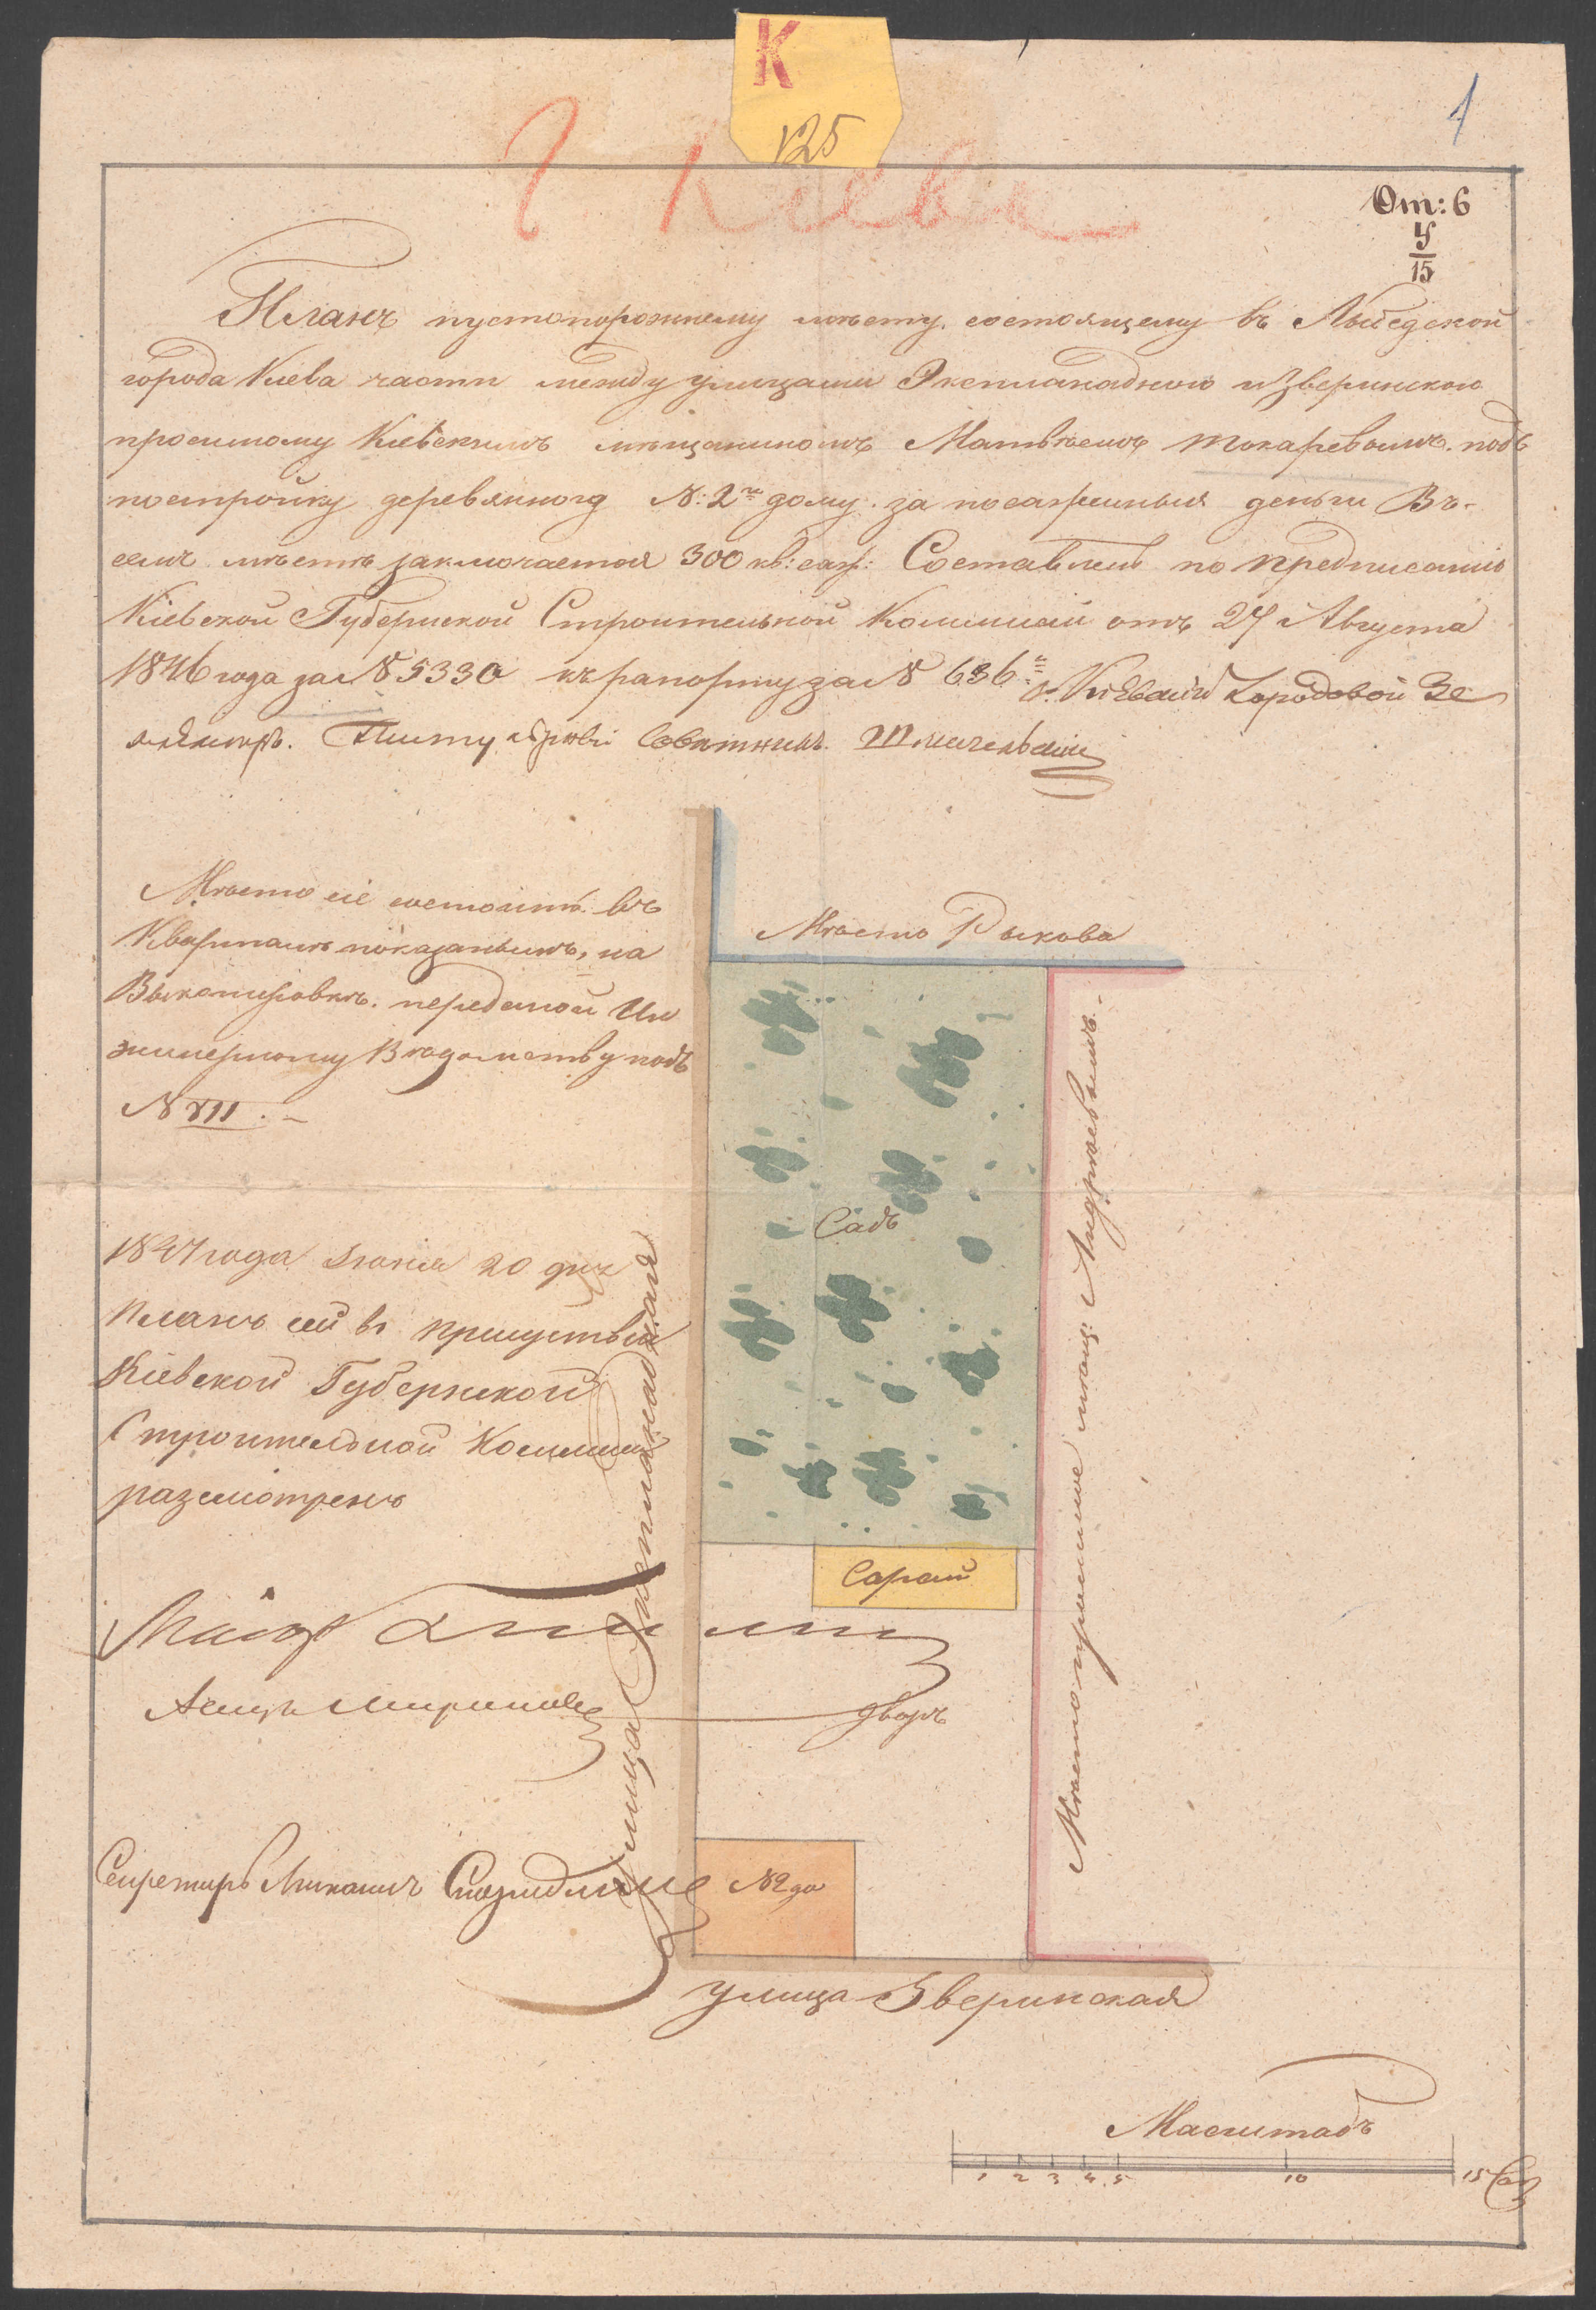 К
125
1
г Кіева
От: 6
У
15
Планъ пустопорожнему мѣсту, состоящему въ Лыбедской
города Кіева части между улицами Эспланадною и Зверинскою
просимому Кіевскимъ мѣщаниномъ Матвѣемъ Токаревымъ подъ
постройку деревяннаго №: 2го дому за посаженныя деньги Въ-
семъ мѣстѣ заключается 300 кв: саж: Составленъ по предписанію
Кіевской Губернской Строительной Коммисіи отъ 27 Августа
1846 года за № 5330 къ рапорту за № 636: Кіевскій Городовой Зе
млемѣръ. Титулярный Совѣтникъ
Мѣсто сіе состоитъ въ
Кварталѣ показанымъ, на
Выкопировкѣ переданой Ин
женерному Вѣдомству подъ
№ VII. –
1847 года Іюня 20 дня
планъ сей въ присутствіи
Кіевской Губернской
Строительной Коммисіи
разсмотренъ
Секретарь
Мѣсто Рыкова
Садъ
Сарай
дворъ
№ 2го
улица Эспланадная
Мѣсто просимое мѣщ: Андрѣевымъ. –
улица Зверинская
Масштабъ
1 2 3 4 5 10 15 Саж